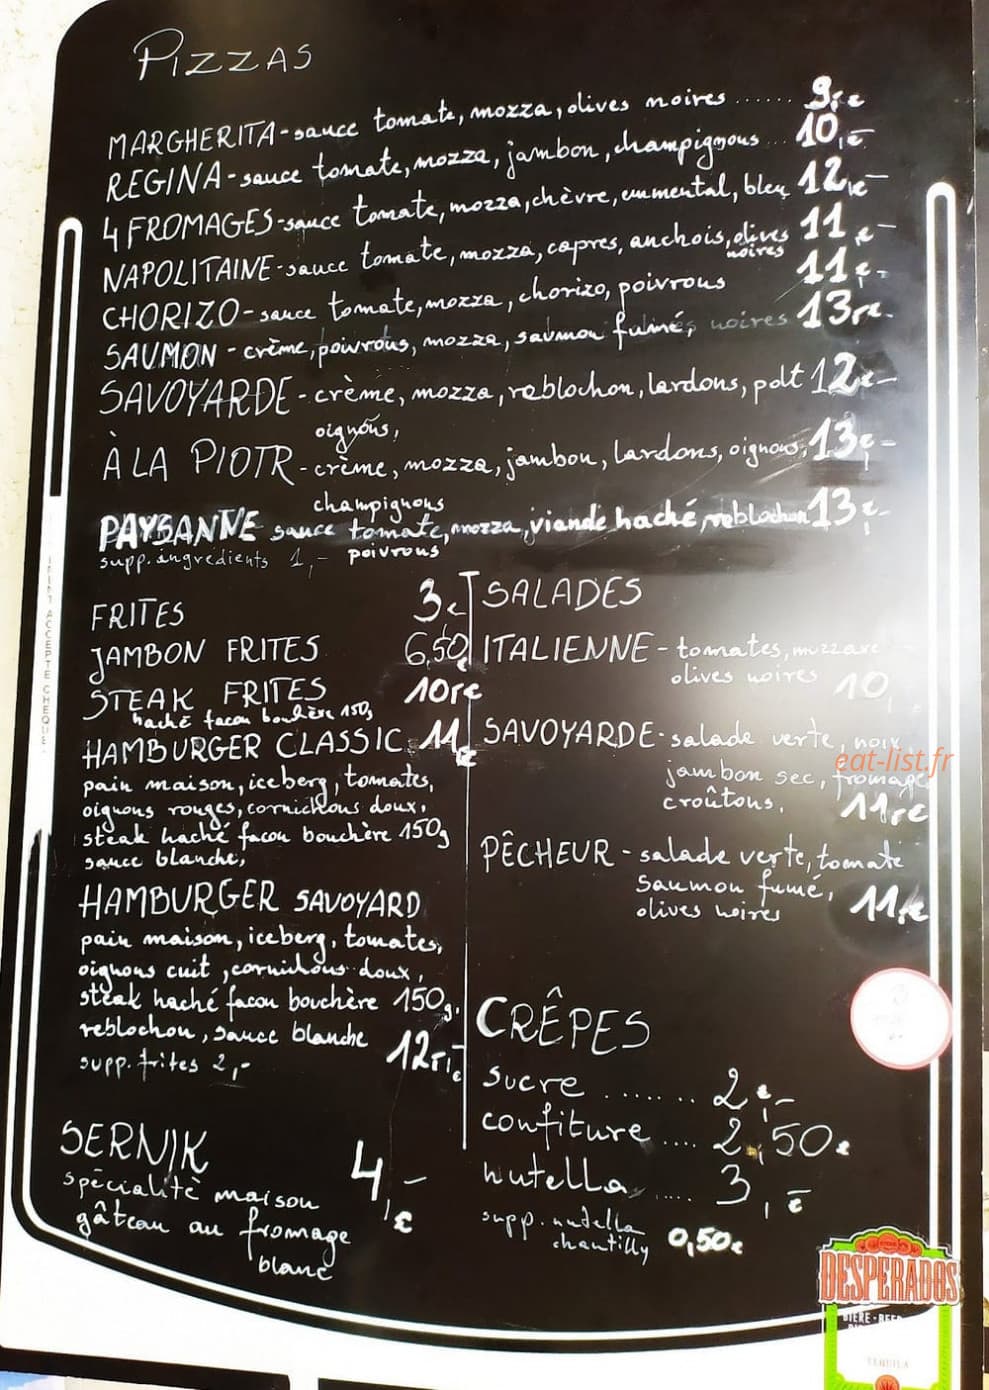 PIZZAS
MARGHERITA - sauce tomate, mozza, olives noires ...... 9,- €
REGINA - sauce tomate, mozza, jambon, champignous ... 10,- €
4 FROMAGES - sauce tomate, mozza, chèvre, emmental, bleu 12,- €
NAPOLITAINE - sauce tomate, mozza, capres, anchois, olives 11,- €
noires
CHORIZO - sauce tomate, mozza, chorizo, poivrous 11,- €
SAUMON - crème, poivrous, mozza, saumon fumé, noires 13,- €
SAVOYARDE - crème, mozza, reblochon, lardons, pdt 12,- €
oignons,
À LA PIOTR - crème, mozza, jambon, lardons, oignons, 13,- €
champignons
PAYSANNE sauce tomate, mozza, viande haché, reblochon 13,- €
supp. ingredients 1,- poivrous
FRITES 3 €
JAMBON FRITES 6,50 €
STEAK FRITES 10,- €
haché facon bouchère 150g
HAMBURGER CLASSIC 11,- €
pain maison, iceberg, tomates,
oignons rouges, cornichons doux,
steak haché facon bouchère 150g
sauce blanche,
HAMBURGER SAVOYARD
pain maison, iceberg, tomates,
oignons cuit, cornichons doux,
steak haché facon bouchère 150g,
reblochon, sauce blanche
12,- €
supp. frites 2,-
SERNIK 4,- €
spécialité maison
gâteau au fromage
blanc
SALADES
ITALIENNE - tomates,
olives noires 10,- €
SAVOYARDE - salade verte, noix
jambon sec, fromage
croûtons, 11,- €
PÊCHEUR - salade verte, tomate
saumon fumé,
olives noires 11,- €
CRÊPES
sucre ....... 2,- €
confiture .... 2,50 €
nutella ..... 3,- €
supp. nutella
chantilly 0,50 €
ACCEPTE CHEQUE
eat-list.fr
DESPERADOS
BIERE - BEER
TEQUILA